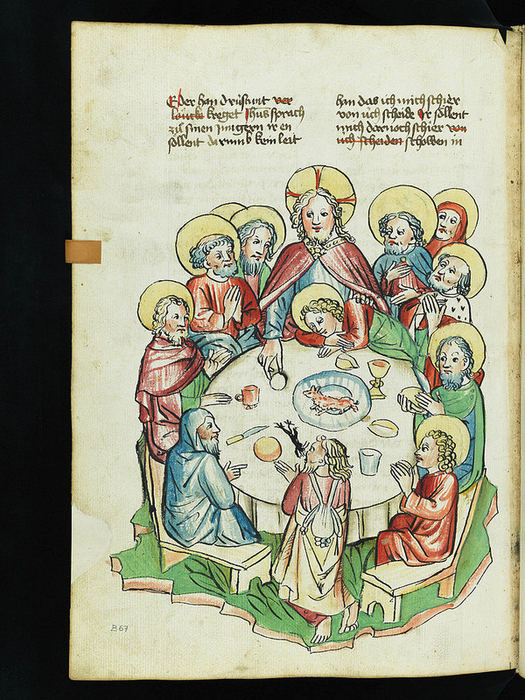 E der han drűstunt ver
kreget Jhus sprach
zů sinen jungern ir en
sőllent darumb kein leit
han das ich mich schier
von úch scheide Ir sőllent
mich darnoch schier von
úch scheiden schőwen in
B 67